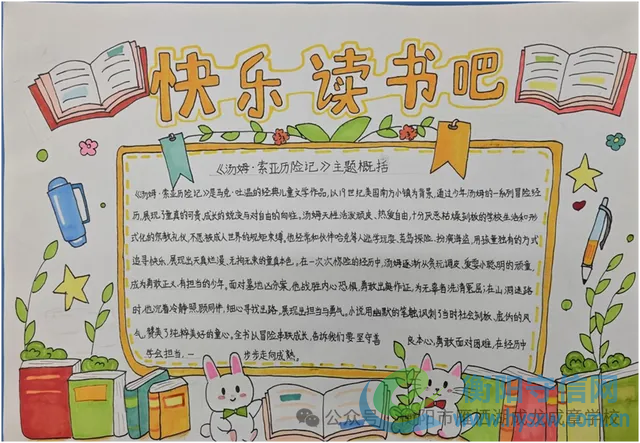 快乐读书吧
《汤姆·索亚历险记》主题概括
《汤姆·索亚历险记》是马克·吐温的经典儿童文学作品,以19世纪美国南方小镇为背景,通过少年汤姆的一系列冒险经
历,展现了童真的可贵,成长的蜕变与对自由的向往。汤姆天性活泼顽皮、热爱自由,十分厌恶枯燥刻板的学校生活和形
式化的宗教礼仪,不愿被成人世界的规矩束缚,他经常和伙伴哈克等人逃学玩耍、荒岛探险、扮演海盗,用孩童独有的方式
追寻快乐,展现出天真烂漫、无拘无束的童真本色。在一次次惊险的经历中,汤姆逐渐从贪玩调皮、爱耍小聪明的顽童,
成为勇敢正义,有担当的少年。面对墓地凶杀案,他战胜内心恐惧,勇敢出庭作证,为无辜者洗清冤屈;在山洞迷路
时,他沉着冷静照顾同伴,细心寻找出路,展现出担当与勇气。小说用幽默的笔触,讽刺了当时社会刻板、虚伪的风
气,赞美了纯粹美好的童心。全书以冒险串联成长,告诉我们要坚守善 良本心,勇敢面对困难,在经历中
学会担当,一 步步走向成熟。
衡阳守信网
www.hysxw.com
公众号 · 衡阳市雁栖湖成龙成章学校